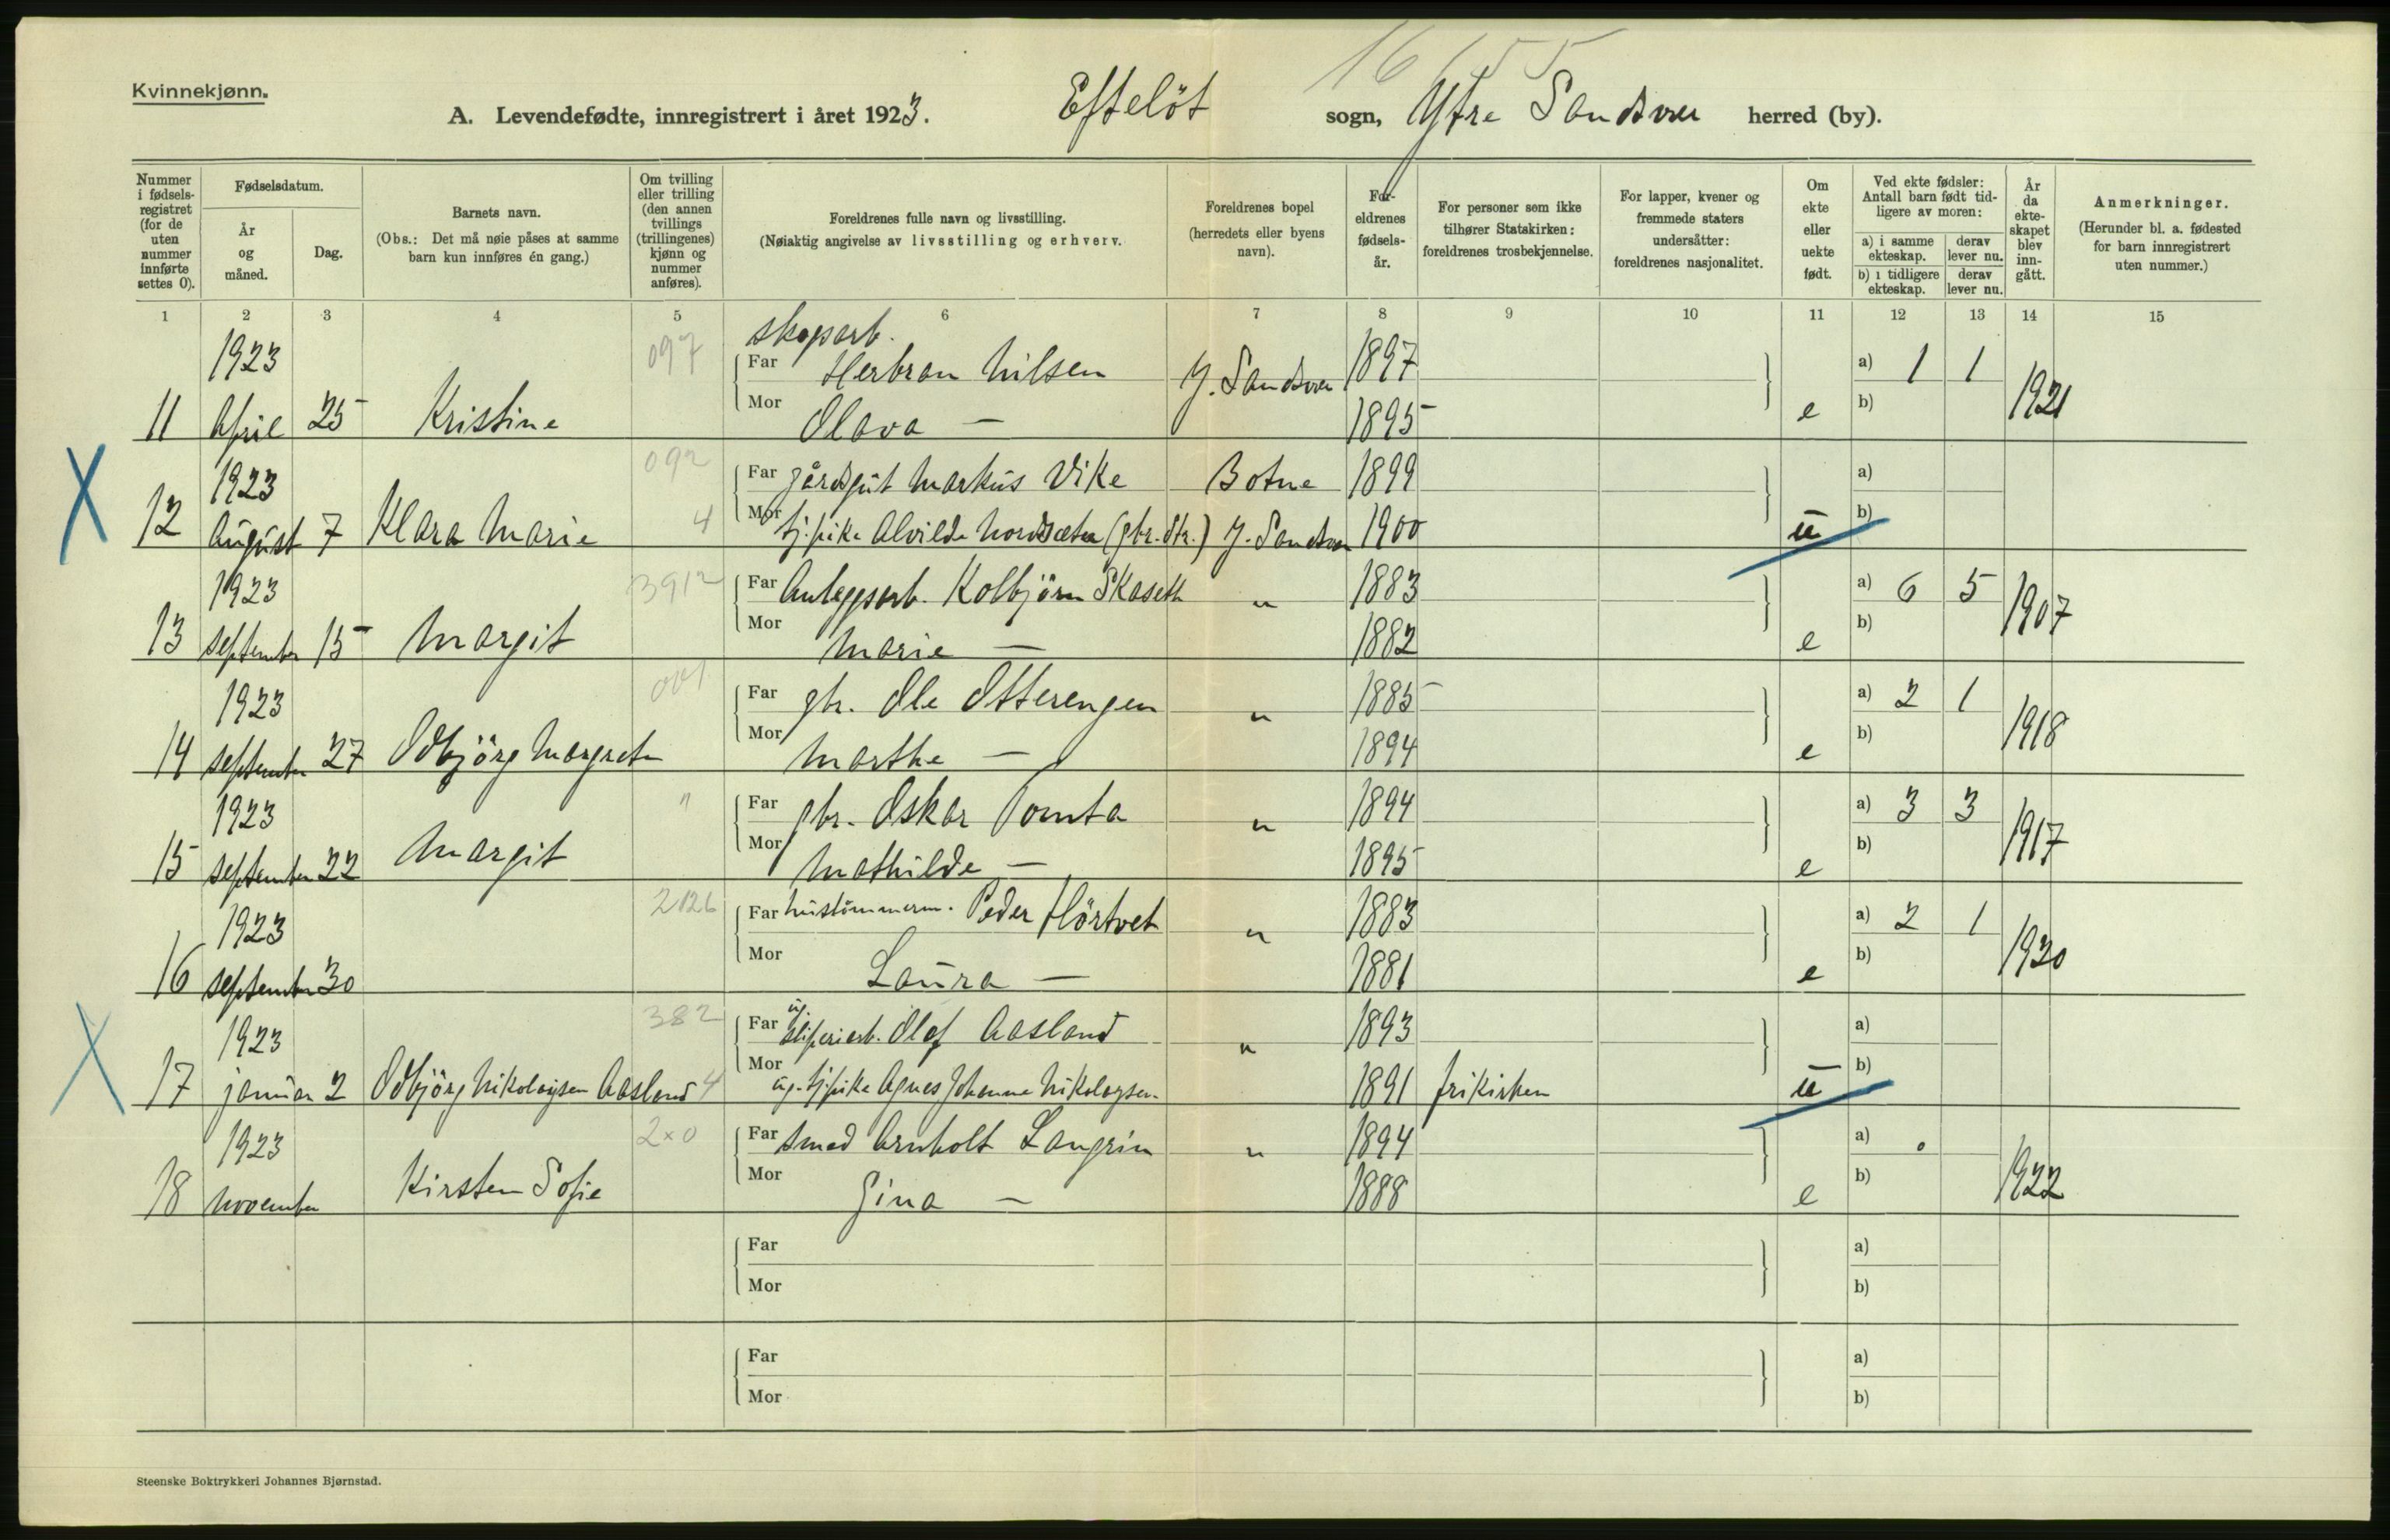 16 55
Kvinnekjønn.
A. Levendefødte, innregistrert i året 1923. Efteløt sogn, Ytre Sandsvær herred (by).
Nummer i fødsels-registret (for de uten nummer innførte settes 0).
Fødselsdatum.
År og måned.
Dag.
Barnets navn.
(Obs.: Det må nøie påses at samme barn kun innføres én gang.)
Om tvilling eller trilling (den annen tvillings (trillingenes) kjønn og nummer anføres).
Foreldrenes fulle navn og livsstilling.
(Nøiaktig angivelse av livsstilling og erhverv.
Foreldrenes bopel (herredets eller byens navn).
For-eldrenes fødsels-år.
For personer som ikke tilhører Statskirken: foreldrenes trosbekjennelse.
For lapper, kvener og fremmede staters undersåtter: foreldrenes nasjonalitet.
Om ekte eller uekte født.
Ved ekte fødsler: Antall barn født tid-ligere av moren:
a) i samme ekteskap. derav lever nu.
b) i tidligere ekteskap. derav lever nu.
År da ekte-skapet blev inn-gått.
Anmerkninger.
(Herunder bl. a. fødested for barn innregistrert uten nummer.)
1 2 3 4 5 6 7 8 9 10 11 12 13 14 15
1923 097 skogsarb.
Far Herbran Nilsen Y. Sandsvær 1897 a) 1 1
11 April 25 Kristine Mor Olava — 1895 e b) 1921
1923 092 Far gårdsgut Markus Vike Botne 1899 a)
12 August 7 Klara Marie 4 Mor tj.pike Alvilde Nordsæter (gbr. dtr.) Y. Sandsvær 1900 u b)
1923 3912 Far Anleggsarb. Kolbjørn Skaseth " 1883 a) 6 5
13 september 15 Margit Mor Marie — 1882 e b) 1907
1923 001 Far gbr. Ole Otterengen " 1885 a) 2 1
14 september 27 Odbjörg Margrete Mor Marthe — 1894 e b) 1918
1923 " Far gbr. Oskar Tomta " 1894 a) 3 3
15 september 22 Margit Mor Mathilde — 1895 e b) 1917
1923 2126 Far hustømmerm. Peder Hörtvet " 1883 a) 2 1
16 september 30 Mor Laura — 1881 e b) 1920
1923 382 Far ug. sliperiarb. Olaf Aasland " 1893 a)
17 januar 2 Odbjörg Nikolaysen Aasland 4 Mor ug. tj.pike Agnes Johanne Nikolaysen. 1891 frikirken u b)
1923 2x0 Far smed Arnholt Langrin " 1894 a) 0
18 november Kirsten Sofie Mor Gina — 1888 e b) 1922
Far a)
Mor b)
Far a)
Mor b)
Steenske Boktrykkeri Johannes Bjørnstad.